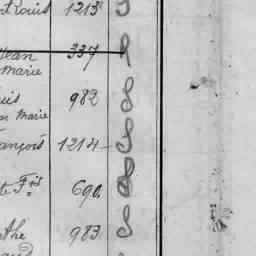 t Louis 1213 S
Jean 337 S
Marie
uis 982 S
n Marie
ançois 1214 S
te Fois 690 S
the 983 S